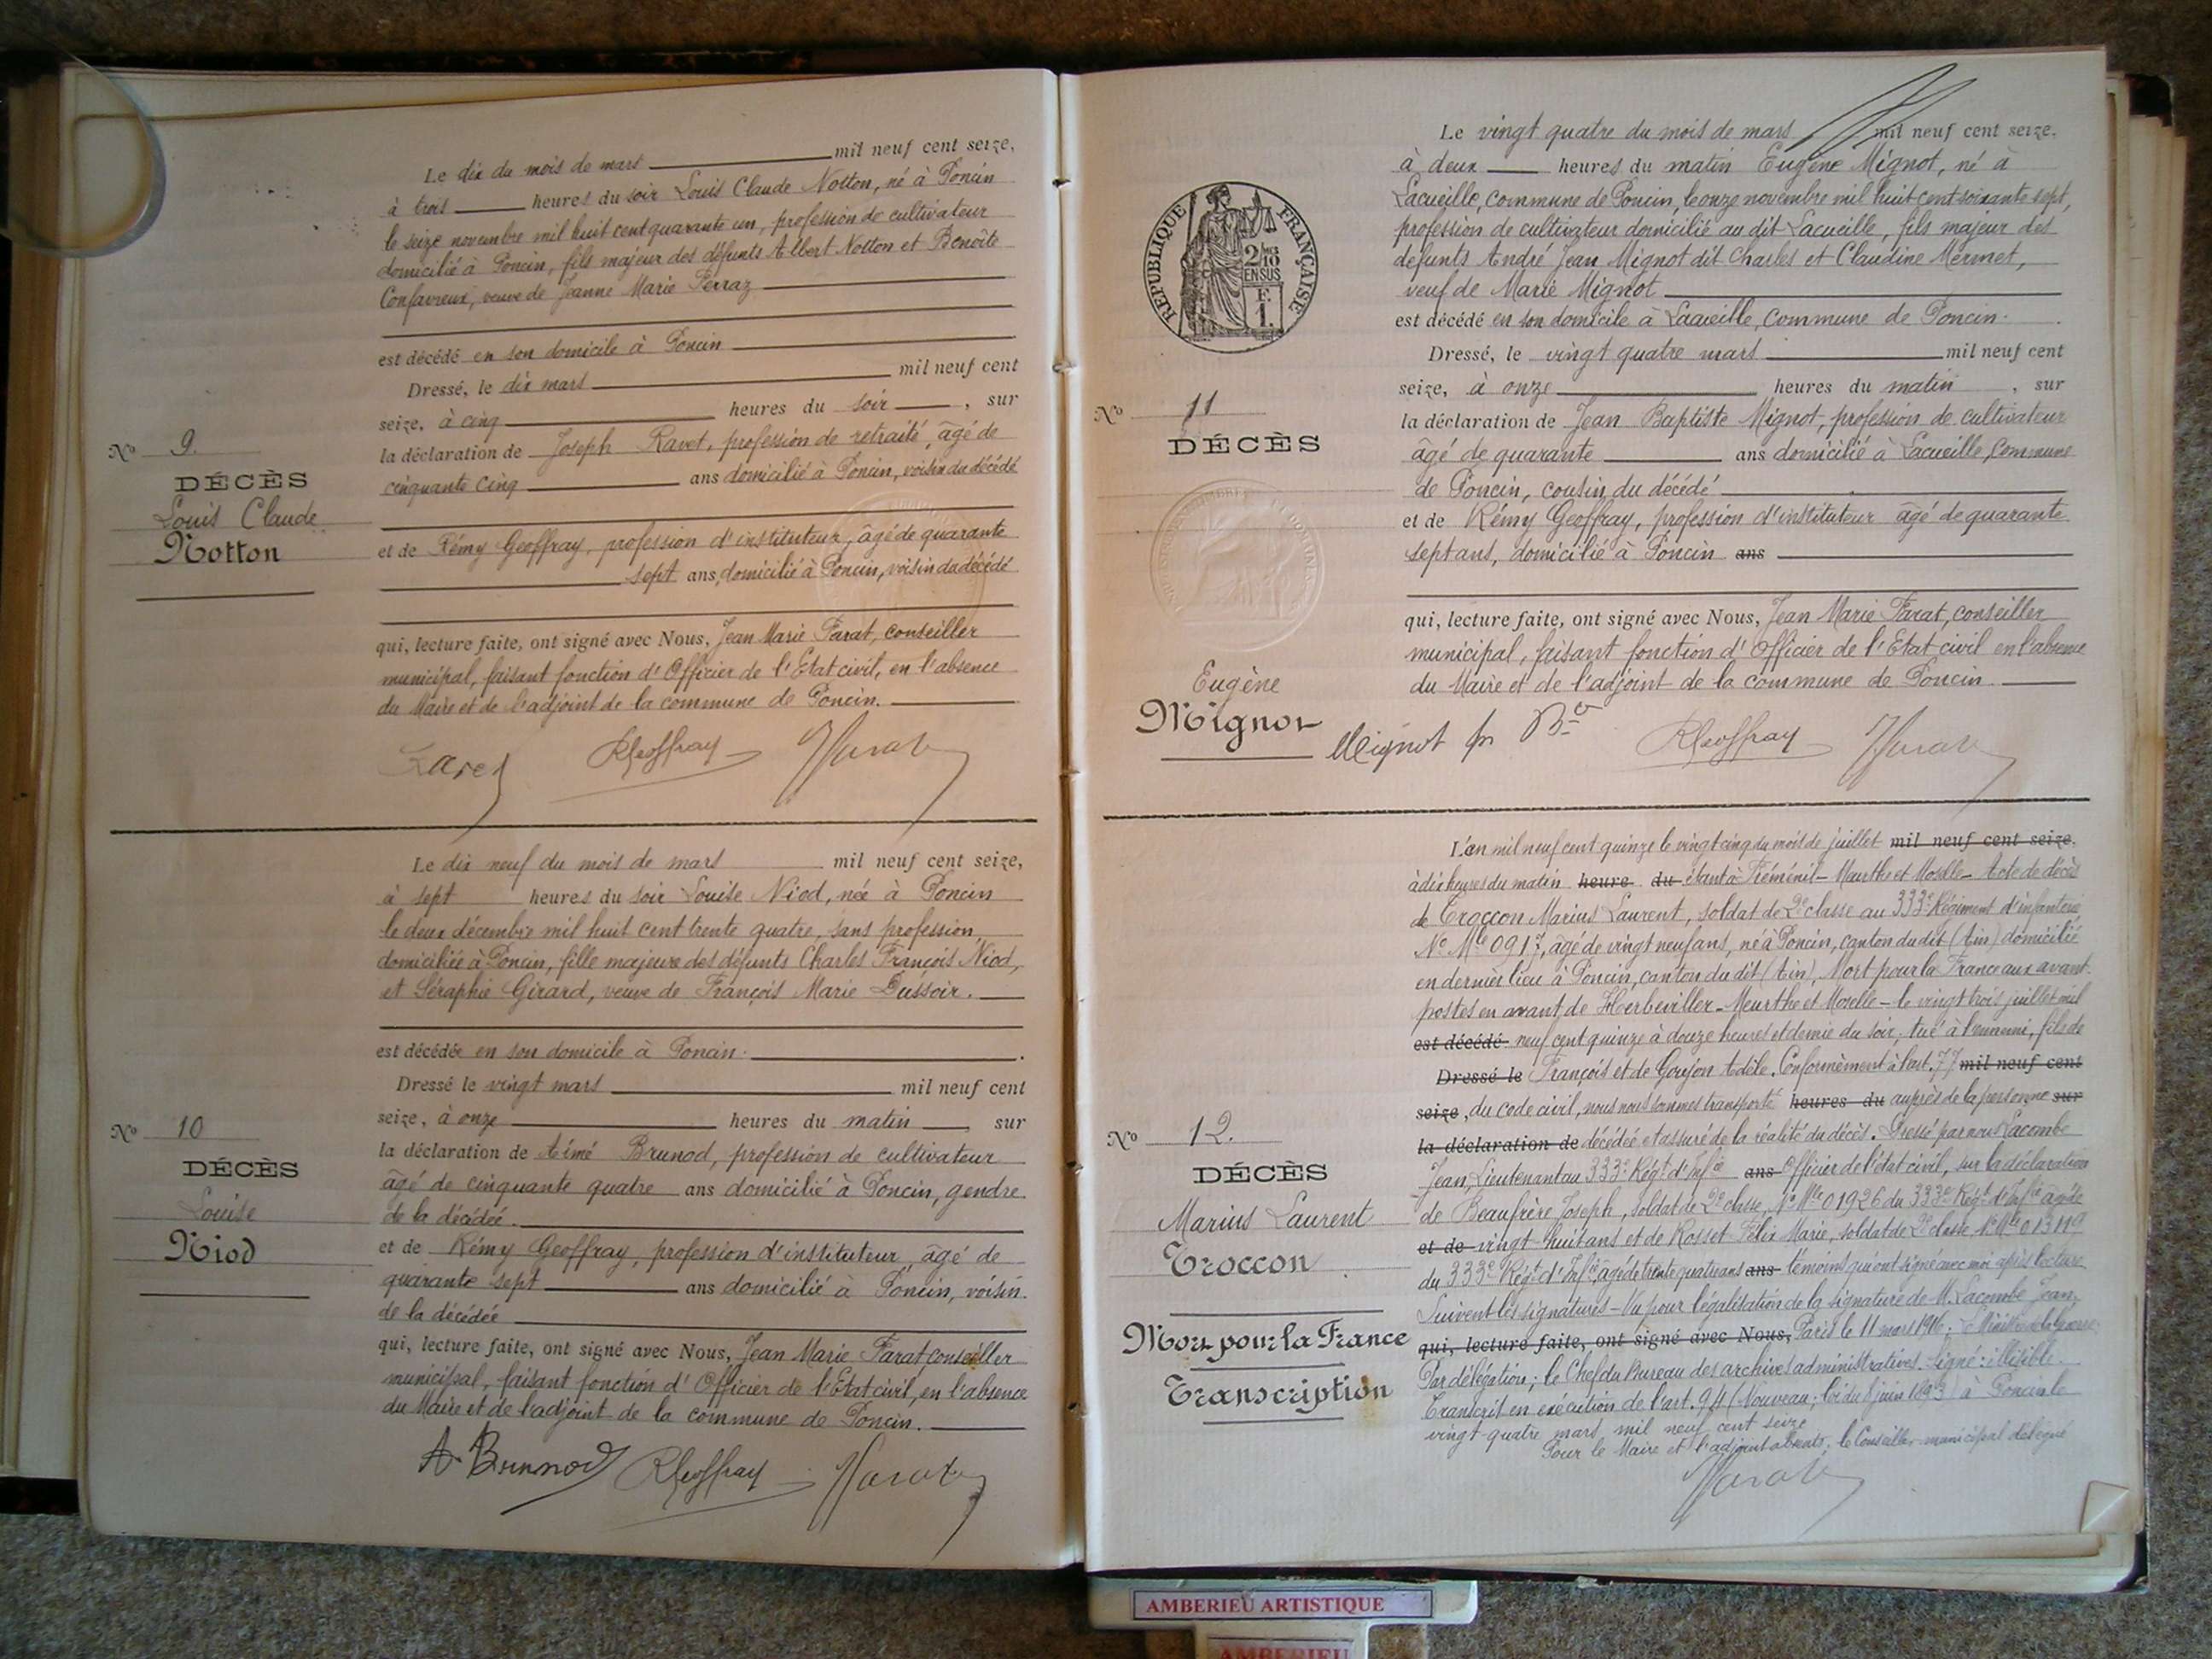 Le dix du mois de mars mil neuf cent seize,
à trois heures du soir Louis Claude Notton, né à Poncin
le seize novembre mil huit cent quarante un, profession de cultivateur
domicilié à Poncin, fils majeur des défunts Albert Notton et Benoîte
Confavreux, veuve de Jeanne Marie Perraz
est décédé en son domicile à Poncin
Dressé, le dix mars mil neuf cent
seize, à cinq heures du soir, sur
la déclaration de Joseph Ravet, profession de retraité, âgé de
cinquante cinq ans domicilié à Poncin, voisin du décédé
et de Rémy Geoffray, profession d'instituteur, âgé de quarante
sept ans, domicilié à Poncin, voisin du décédé
qui, lecture faite, ont signé avec Nous, Jean Marie Farat, conseiller
municipal, faisant fonction d'Officier de l'Etat civil, en l'absence
du Maire et de l'adjoint de la commune de Poncin.
RGeoffray
No 9.
DÉCÈS
Louis Claude
Notton
Le dix neuf du mois de mars mil neuf cent seize,
à sept heures du soir Louise Niod, née à Poncin
le deux décembre mil huit cent trente quatre, sans profession,
domiciliée à Poncin, fille majeure des défunts Charles François Niod,
et Séraphie Girard, veuve de François Marie Dussoir.
est décédée en son domicile à Poncin.
Dressé le vingt mars mil neuf cent
seize, à onze heures du matin, sur
la déclaration de Aimé Brunod, profession de cultivateur
âgé de cinquante quatre ans domicilié à Poncin, gendre
de la décédée.
et de Rémy Geoffray, profession d'instituteur, âgé de
quarante sept ans domicilié à Poncin, voisin
de la décédée
qui, lecture faite, ont signé avec Nous, Jean Marie Farat conseiller
municipal, faisant fonction d'Officier de l'Etat civil, en l'absence
du Maire et de l'adjoint de la commune de Poncin.
A. Brunod RGeoffray
No 10
DÉCÈS
Louise
Niod
Le vingt quatre du mois de mars mil neuf cent seize,
à deux heures du matin Eugène Mignot, né à
Lacueille, commune de Poncin, le onze novembre mil huit cent soixante sept,
profession de cultivateur domicilié au dit Lacueille, fils majeur des
défunts André Jean Mignot dit Charles et Claudine Mermet,
veuf de Marie Mignot
est décédé en son domicile à Lacueille, commune de Poncin.
Dressé, le vingt quatre mars mil neuf cent
seize, à onze heures du matin, sur
la déclaration de Jean Baptiste Mignot, profession de cultivateur
âgé de quarante ans domicilié à Lacueille, commune
de Poncin, cousin du décédé
et de Rémy Geoffray, profession d'instituteur âgé de quarante
sept ans, domicilié à Poncin ans
qui, lecture faite, ont signé avec Nous, Jean Marie Farat, conseiller
municipal, faisant fonction d'Officier de l'Etat civil en l'absence
du Maire et de l'adjoint de la commune de Poncin
Mignot RGeoffray
RÉPUBLIQUE FRANÇAISE
2/10
EN SUS
F.
1.
No 11
DÉCÈS
Eugène
Mignot
L'an mil neuf cent quinze le vingt cinq du mois de juillet mil neuf cent seize,
à dix heures du matin heure du étant à Fréménil - Meurthe et Moselle - Acte de décès
de Troccon Marius Laurent, soldat de 2e classe au 333e Régiment d'infanterie,
No Mle 0917, âgé de vingt neuf ans, né à Poncin, canton du dit (Ain) domicilié
en dernier lieu à Poncin, canton du dit (Ain), Mort pour la France aux avant-
postes en avant de Herbeviller - Meurthe et Moselle - le vingt trois juillet mil
est décédé neuf cent quinze à douze heures et demie du soir, tué à l'ennemi, fils de
Dressé le François et de Goujon Adèle. Conformément à l'art. 77 mil neuf cent
seize, du code civil, nous nous sommes transporté heures du auprès de la personne sur
la déclaration de décédée et assuré de la réalité du décès. Dressé par nous Lacombe
Jean, Lieutenant au 333e Régt d'Infie ans Officier de l'état civil, sur la déclaration
de Beaufrère Joseph, soldat de 2e classe, No Mle 01926 du 333e Régt d'Infie âgé de
et de vingt-huit ans et de Rosset Félix Marie, soldat de 2e classe No Mle
du 333e Régt d'Infie, âgé de trente quatre ans ans témoins qui ont signé avec moi après lecture.
Suivent les signatures - Vu pour légalisation de la signature de M. Lacombe Jean,
qui, lecture faite, ont signé avec Nous, Paris le 11 mars 1916, Ministre de la Guerre.
Par délégation; le Chef du Bureau des archives administratives. Signé: illisible.
Transcrit en exécution de l'art. 94 (Nouveau; loi du 8 juin 1893) à Poncin le
vingt-quatre mars mil neuf cent seize
Pour le Maire et l'adjoint absents, le Conseiller municipal délégué
No 12.
DÉCÈS
Marius Laurent
Troccon
Mort pour la France
Transcription
AMBERIEU ARTISTIQUE
AMBERIEU